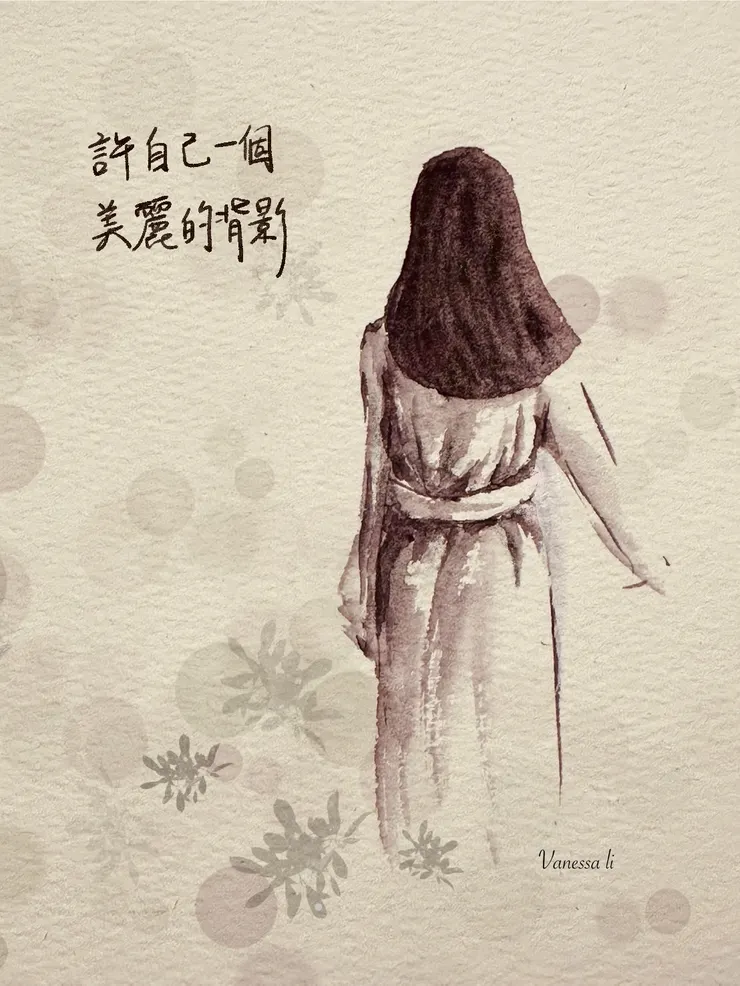 許自己一個
美麗的背影
Vanessa li